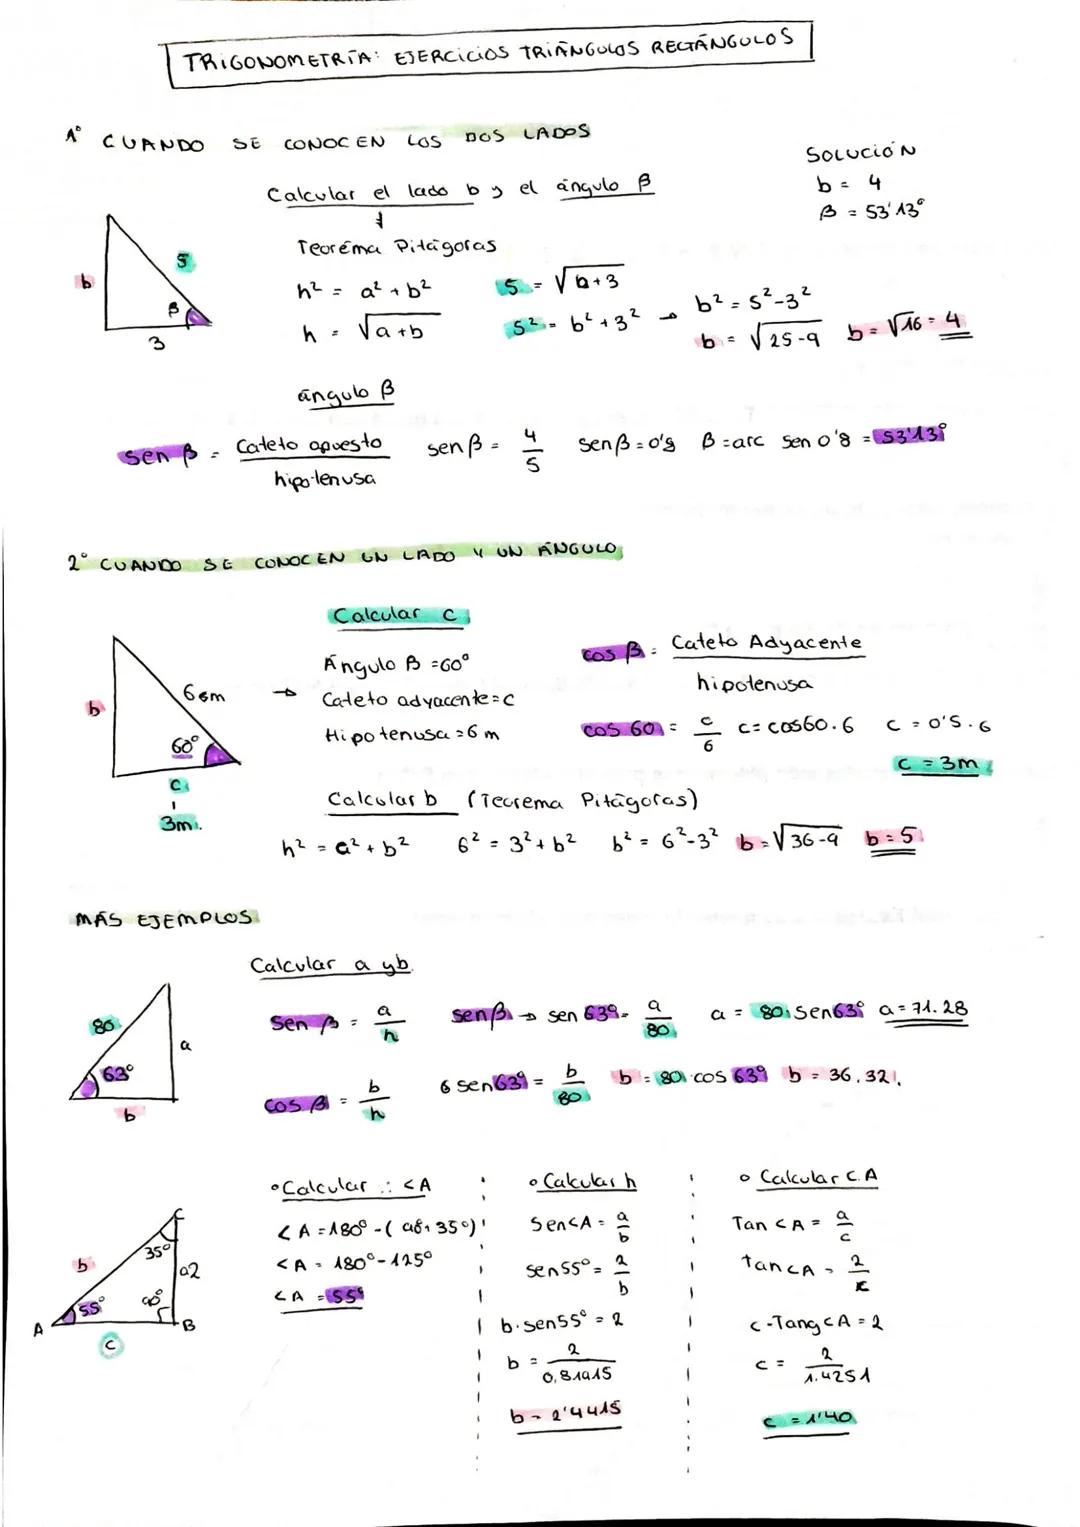 TRIGONOMETRÍA: EJERCICIOS TRIÁNGULOS RECTÁNGULOS
1º CUANDO SE CONOCEN LOS DOS LADOS
SOLUCIÓN
b = 4
β = 53'13º
Calcular el lado b y el ángulo β
Teorema Pitágoras
h² = a² + b²
h = √a+b
5 = √b+3
5² = b² + 3² → b² = 5²-3²
b = √25-9 b = √16 = 4
b
5
β
3
ángulo β
sen β = Cateto opuesto / hipotenusa sen β = 4/5 sen β = 0'8 β = arc sen 0'8 = 53'13º
2º CUANDO SE CONOCEN UN LADO Y UN ÁNGULO
Calcular c
Ángulo β = 60º
→ Cateto adyacente = c
Hipotenusa = 6 m
cos β = Cateto Adyacente / hipotenusa
cos 60 = c/6 c = cos60·6 c = 0'5·6
c = 3m
b
6cm
60º
c
3m.
Calcular b (Teorema Pitágoras)
h² = a² + b² 6² = 3² + b² b² = 6²-3² b = √36-9 b = 5
MÁS EJEMPLOS
Calcular a y b.
Sen β = a/h sen β → sen 63º = a/80 a = 80·Sen63º a = 71.28
cos β = b/h 6 sen63º = b/80 b = 80·cos 63º b = 36.321
80
63º
a
b
• Calcular ∴ <A
<A = 180º - (90+35º)
<A = 180º - 125º
<A = 55º
• Calcular h
Sen<A = a/b
sen55º = 2/b
b·sen55º = 2
b = 2/0,81915
b = 2'4415
• Calcular C.A
Tan <A = a/c
tan<A = 2/c
c·Tang<A = 2
c = 2/1.4251
c = 1'40
C
35º
b
a2
55º
90º
A
B
c